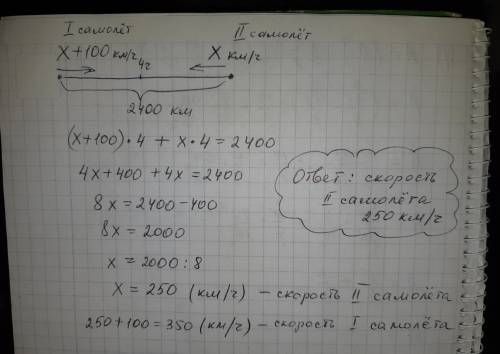 I самолёт II самолёт
x+100 км/ч x км/ч
4ч
2400 км
(x+100)·4 + x·4 = 2400
4x+400 +4x =2400
8x = 2400-400
8x = 2000
x = 2000 : 8
x = 250 (км/ч) – скорость II самолёта
250+100=350 (км/ч) – скорость I самолёта
Ответ: скорость
II самолёта
250 км/ч